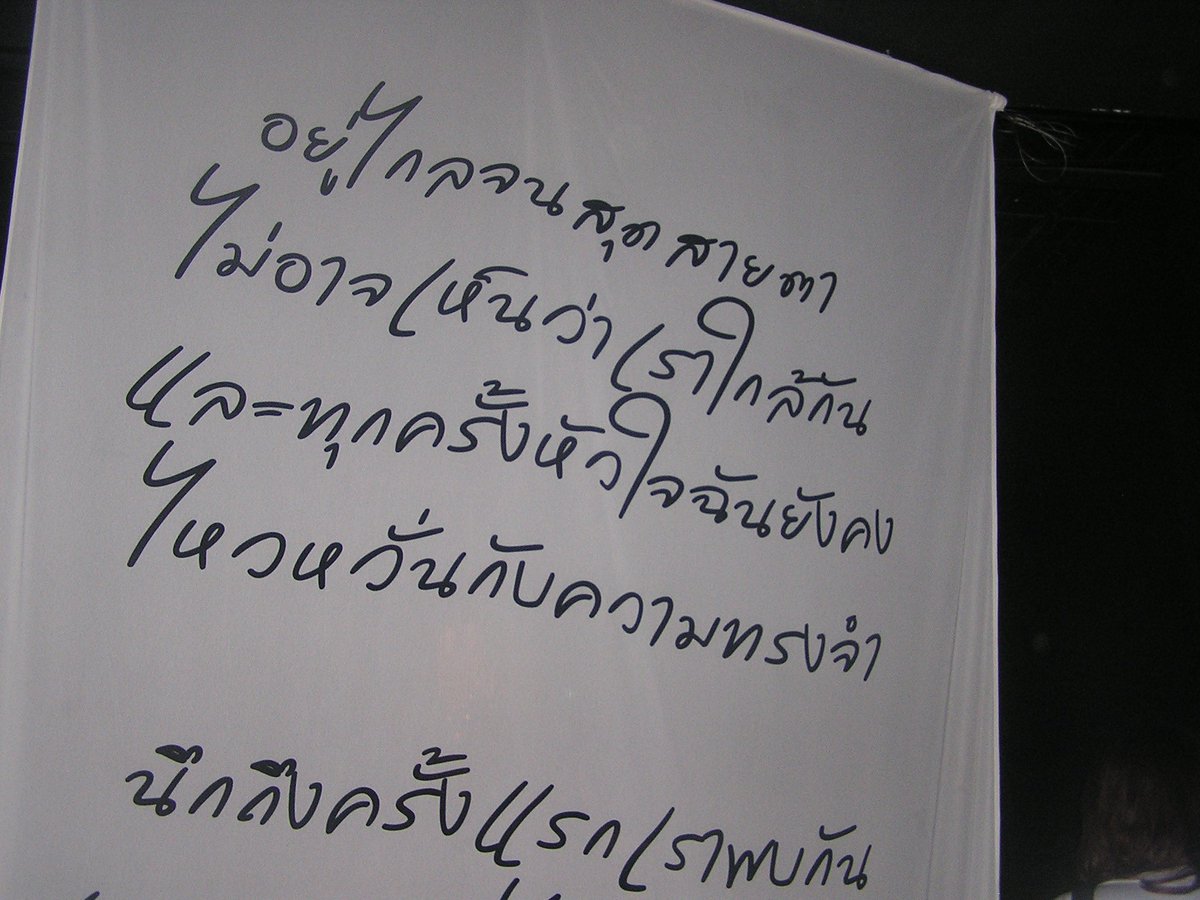 อยู่ไกลจนสุดสายตา
ไม่อาจเห็นว่าเราใกล้กัน
และทุกครั้งหัวใจฉันยังคง
ไหวหวั่นกับความทรงจำ
นึกถึงครั้งแรกเราพบกัน